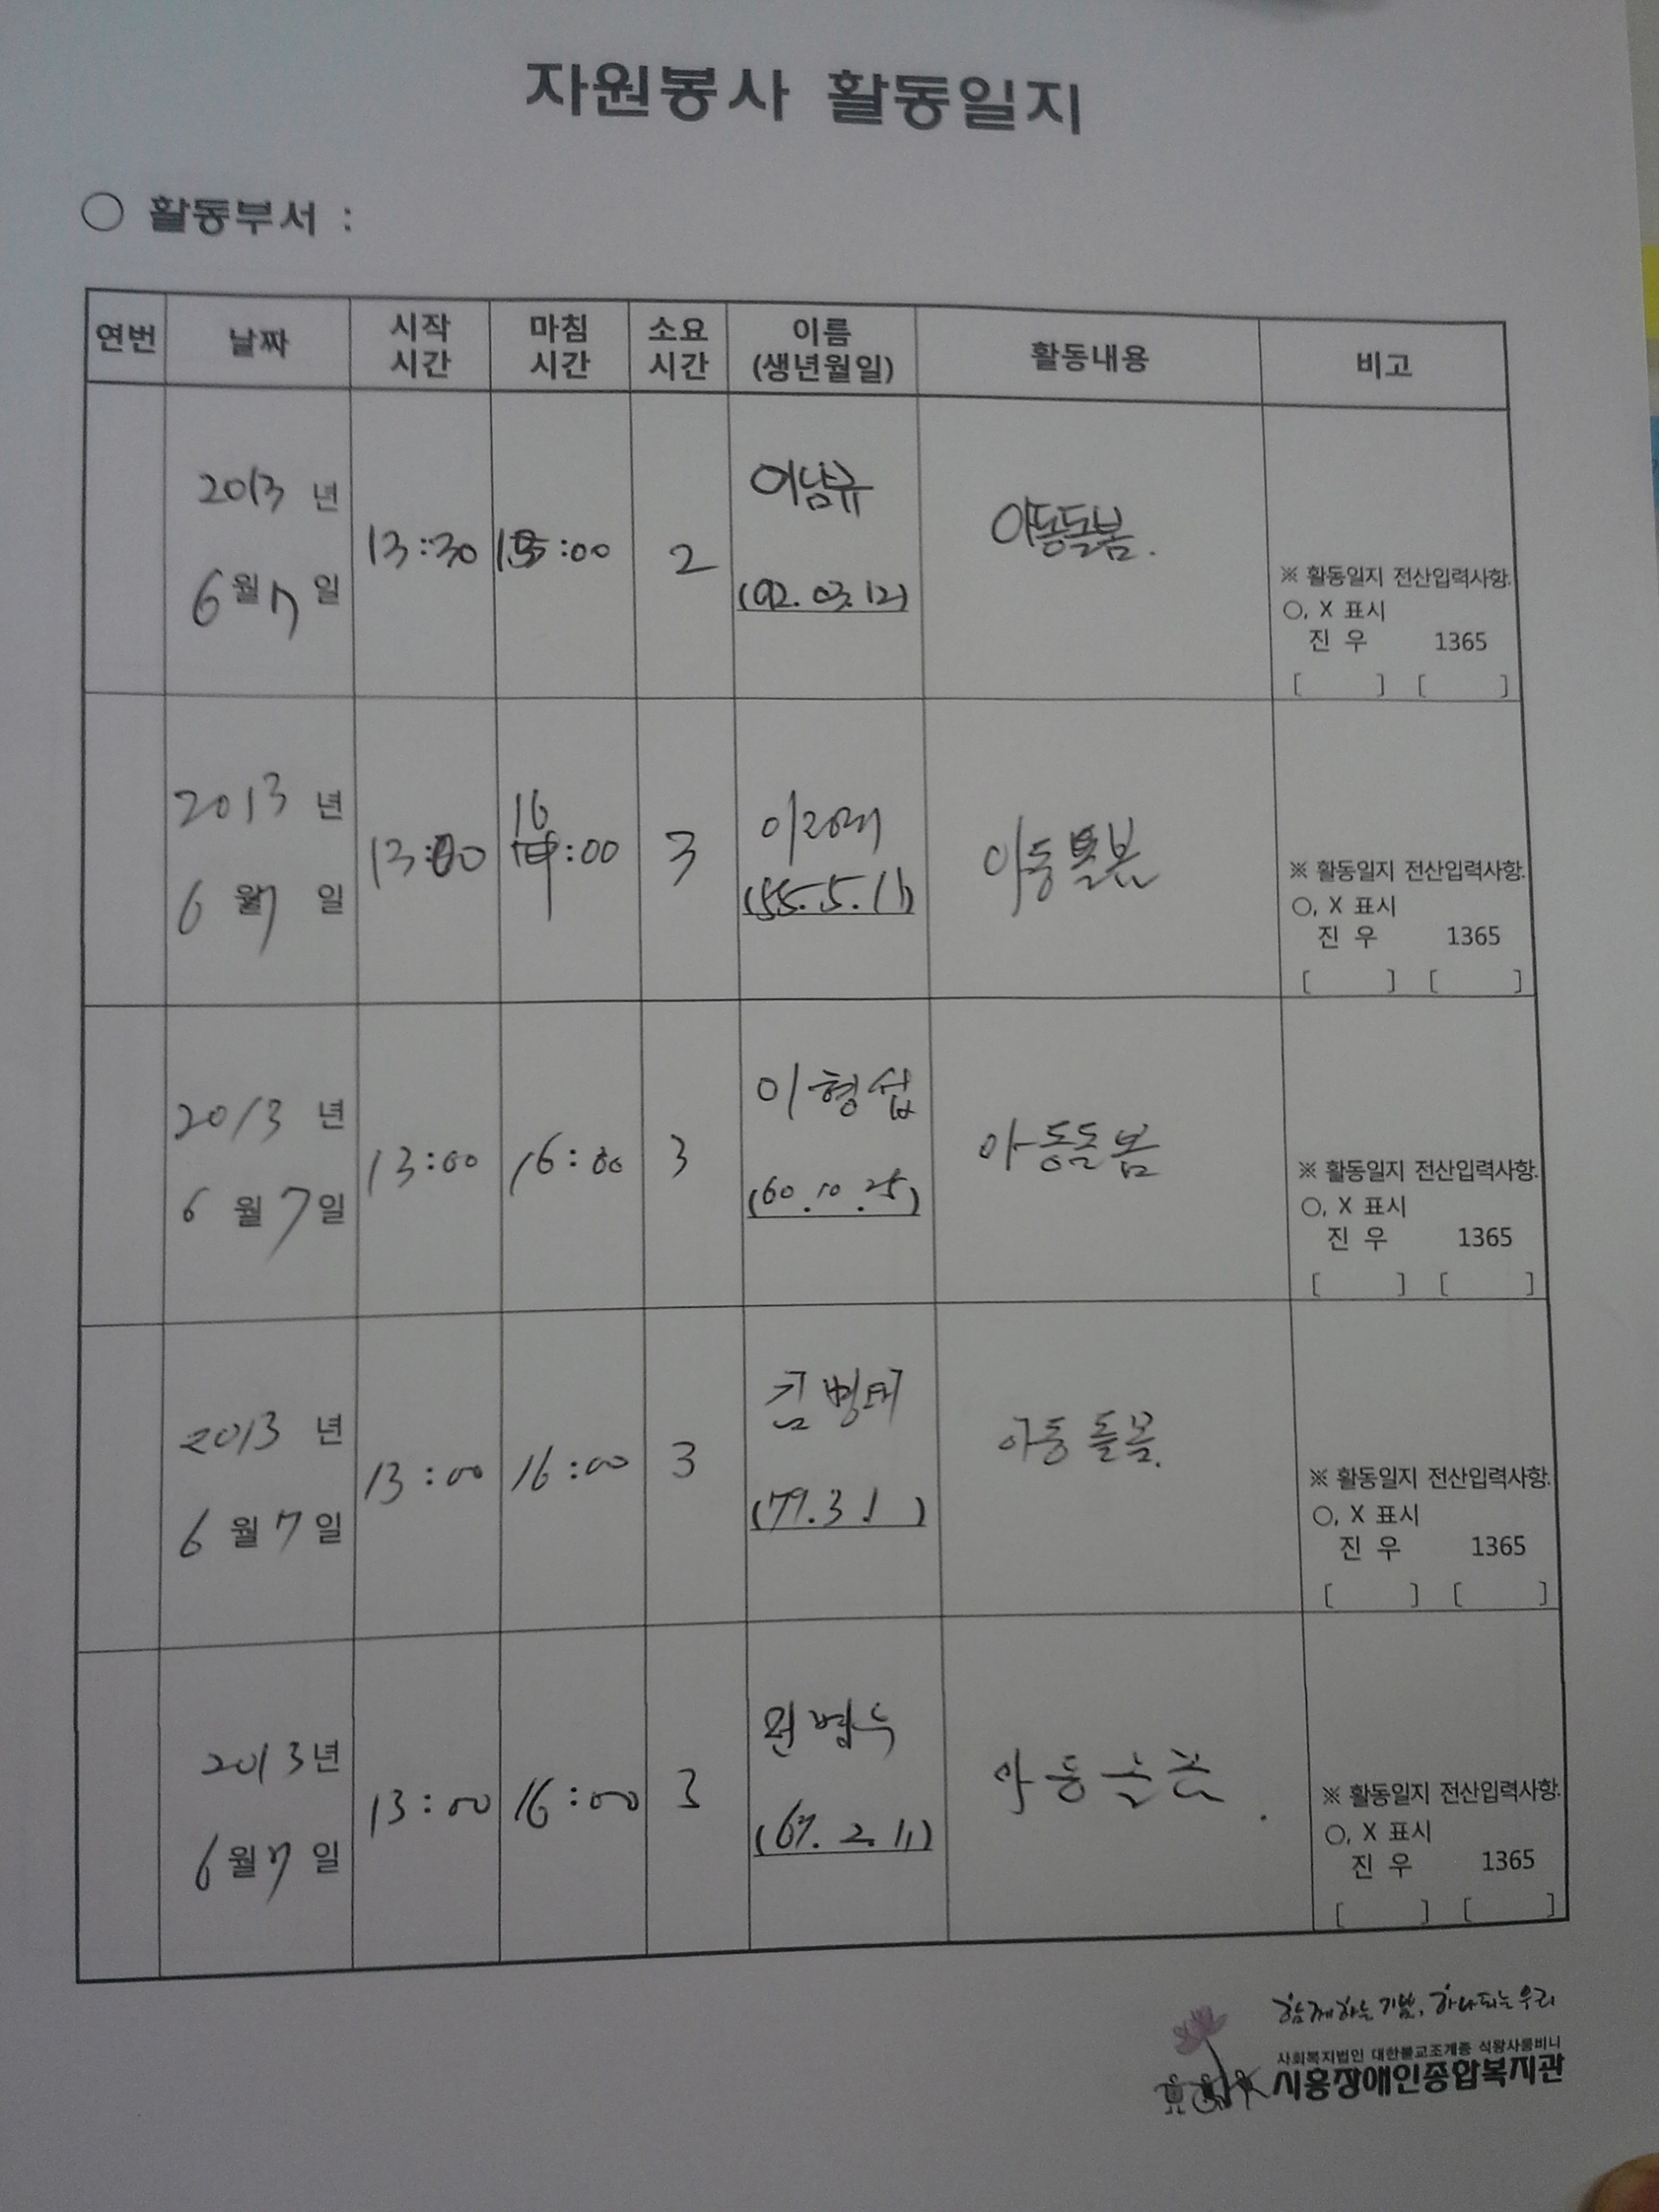 자원봉사 활동일지
○ 활동부서 :
연번 날짜 시작 시간 마침 시간 소요 시간 이름 (생년월일) 활동내용 비고
2013 년
6 월 7 일
13:30 :00 2
어남규
(92. 03. 12)
아동돌봄.
※ 활동일지 전산입력사항.
○, X 표시
진 우 1365
[ ] [ ]
2013 년
6 월 7 일
13:00 16:00 3
(55. 5. 11)
아동돌봄
※ 활동일지 전산입력사항.
○, X 표시
진 우 1365
[ ] [ ]
2013 년
6 월 7 일
13:00 16:00 3
이형섭
(60. 10. 25)
아동돌봄
※ 활동일지 전산입력사항.
○, X 표시
진 우 1365
[ ] [ ]
2013 년
6 월 7 일
13:00 16:00 3
김병태
(79. 3. 1)
아동돌봄.
※ 활동일지 전산입력사항.
○, X 표시
진 우 1365
[ ] [ ]
2013 년
6 월 7 일
13:00 16:00 3
(67. 2. 11)
아동돌봄.
※ 활동일지 전산입력사항.
○, X 표시
진 우 1365
[ ] [ ]
함께하는 기쁨, 하나되는 우리
사회복지법인 대한불교조계종 석왕사룸비니
시흥장애인종합복지관